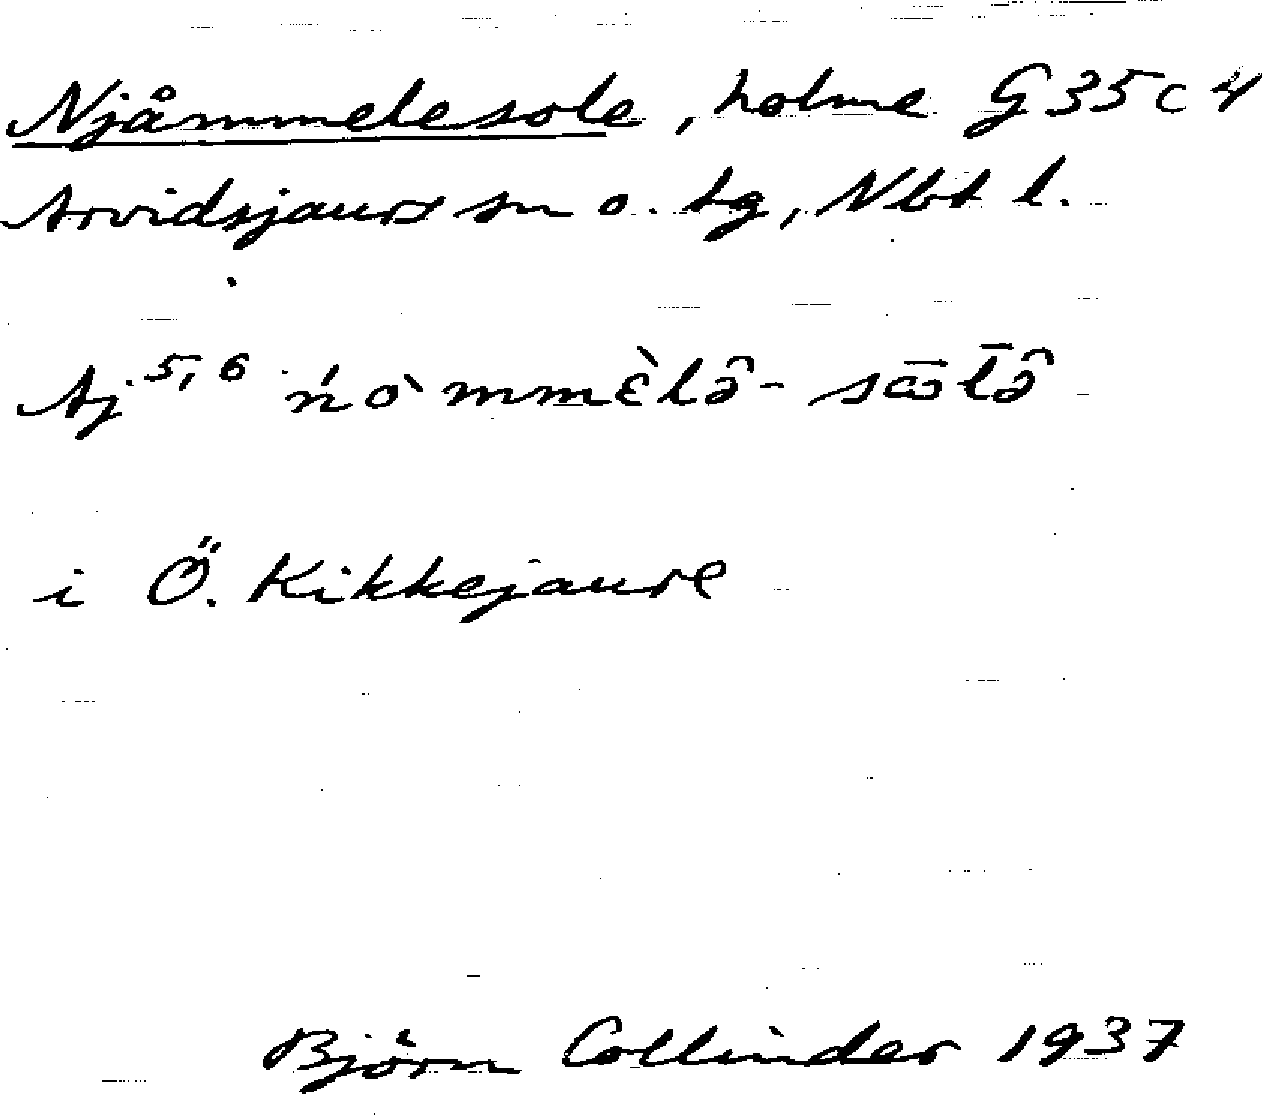 Njåmmelesole, holme G 35 c 4
Arvidsjaurs sn o. tg, Nbt l.
Aj 5, 6 ńò mmὲlə̑- sɷ̄l̄ə̑
i Ö. Kikkejaure
Björn Collinder 1937